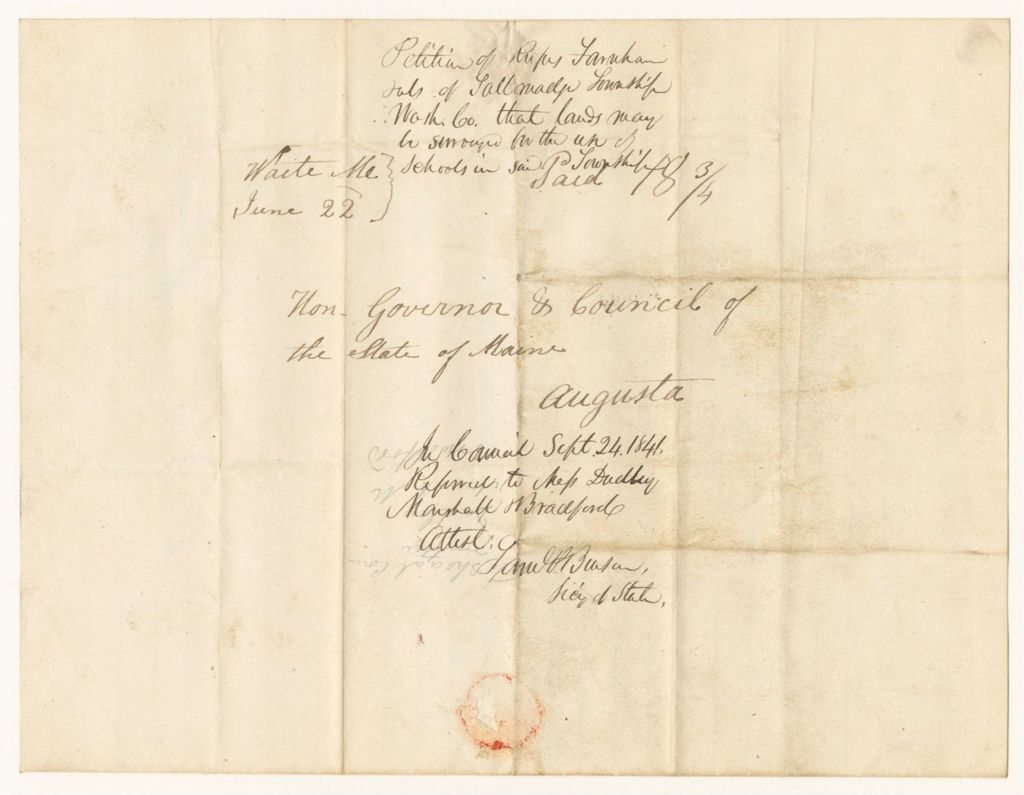 Petition of Rufus Farnham
& als. of Tallmadge Township
Wash. Co. that lands may
be surveyed for the use of
schools in said Township
Waite Me.
June 22
Paid 18 3/4
Hon. Governor & Council of
the State of Maine
Augusta
In Council Sept. 24. 1841.
Referred to Mess Dudley
Marshall & Bradford
Attest:
Saml P. Benson,
Sec'y of State.